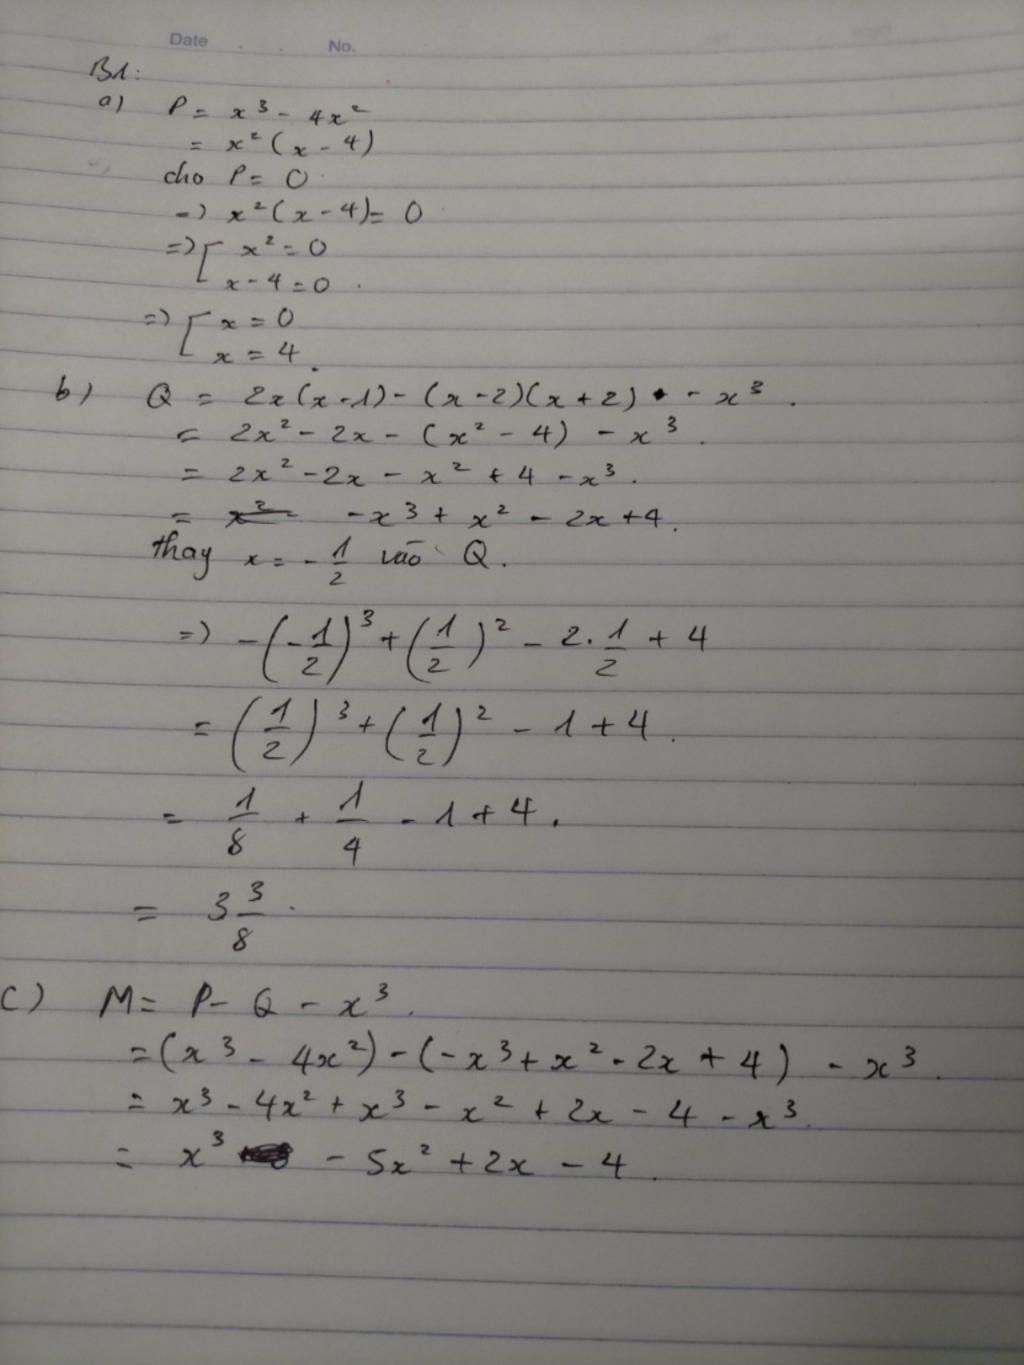 Date . . No.
B1:
a) P = x³ - 4x²
= x² (x - 4)
cho P = 0
=> x² (x - 4) = 0
=> [ x² = 0
x - 4 = 0 .
=> [ x = 0
x = 4 .
b) Q = 2x(x-1) - (x-2)(x+2) - x³ .
= 2x² - 2x - (x² - 4) - x³ .
= 2x² - 2x - x² + 4 - x³ .
= - x³ + x² - 2x + 4 .
thay x = - 1/2 vào Q .
=> -(-1/2)³ + (1/2)² - 2 . 1/2 + 4
= (1/2)³ + (1/2)² - 1 + 4 .
= 1/8 + 1/4 - 1 + 4 .
= 3 3/8 .
c) M = P - Q - x³ .
= (x³ - 4x²) - (-x³ + x² - 2x + 4) - x³ .
= x³ - 4x² + x³ - x² + 2x - 4 - x³ .
= x³ - 5x² + 2x - 4 .